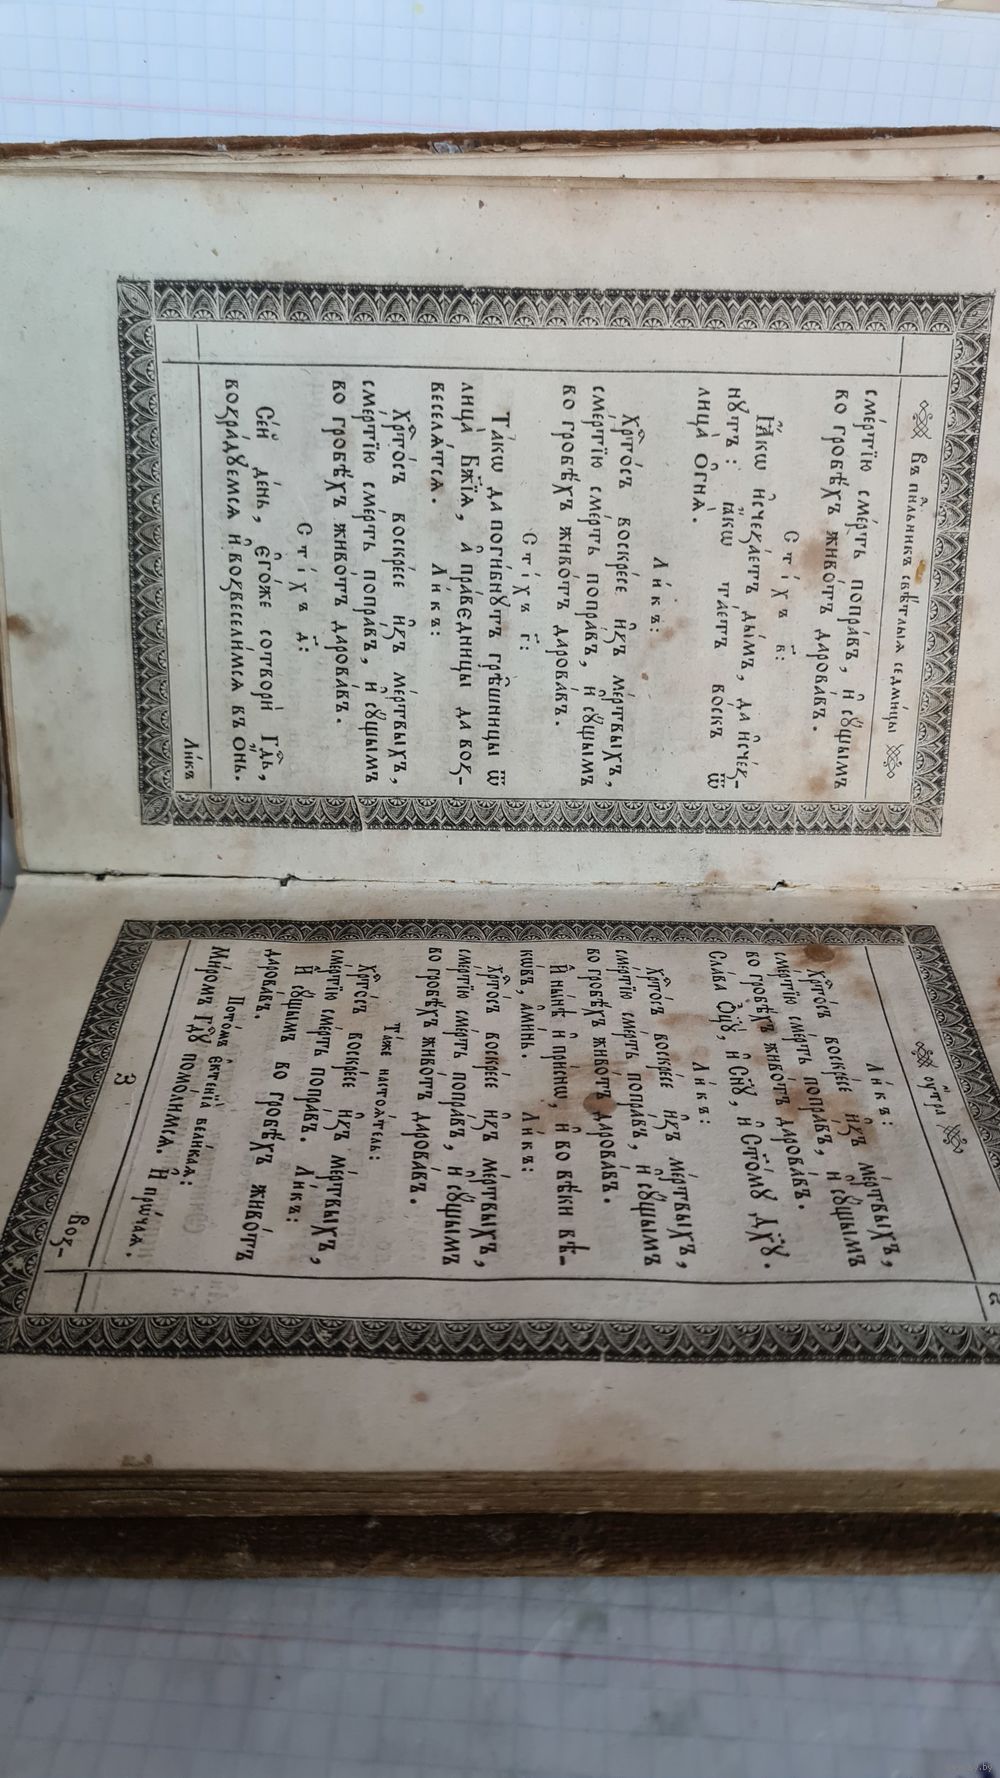 Въ пн҃льникъ свѣ́тлыѧ седми́цы
сме́ртїю сме́рть попра́въ, и҆ сꙋ́щымъ
во гробѣ́хъ живо́тъ дарова́въ.
Сті́хъ в҃:
Ꙗ҆́кѡ и҆счеза́етъ ды́мъ, да и҆сче́з-
нꙋтъ: ꙗ҆́кѡ та́етъ во́скъ ѿ
лица̀ ѻ҆гнѧ̀.
Ли́къ:
Хрⷭ҇то́съ воскре́се и҆з̾ ме́ртвыхъ,
сме́ртїю сме́рть попра́въ, и҆ сꙋ́щымъ
во гробѣ́хъ живо́тъ дарова́въ.
Сті́хъ г҃:
Та́кѡ да поги́бнꙋтъ грѣ̑шницы ѿ
лица̀ Бж҃їѧ, а҆ пра́вєдницы да воз-
веселѧ́тсѧ. Ли́къ:
Хрⷭ҇то́съ воскре́се и҆з̾ ме́ртвыхъ,
сме́ртїю сме́рть попра́въ, и҆ сꙋ́щымъ
во гробѣ́хъ живо́тъ дарова́въ.
Сті́хъ д҃:
Се́й де́нь, є҆го́же сотворѝ Гдⷭ҇ь,
возра́дꙋемсѧ и҆ возвесели́мсѧ въ ѻ҆́нь.
Ли́къ
ᲂу҆́тра
Ли́къ:
Хрⷭ҇то́съ воскре́се и҆з̾ ме́ртвыхъ,
сме́ртїю сме́рть попра́въ, и҆ сꙋ́щымъ
во гробѣ́хъ живо́тъ дарова́въ.
Сла́ва Ѻ҆ц҃ꙋ̀, и҆ Сн҃ꙋ, и҆ Ст҃о́мꙋ Дх҃ꙋ.
Ли́къ:
Хрⷭ҇то́съ воскре́се и҆з̾ ме́ртвыхъ,
сме́ртїю сме́рть попра́въ, и҆ сꙋ́щымъ
во гробѣ́хъ живо́тъ дарова́въ.
И҆ ны́нѣ и҆ при́снѡ, и҆ во вѣ́ки вѣ-
кѡ́въ, а҆ми́нь. Ли́къ:
Хрⷭ҇то́съ воскре́се и҆з̾ ме́ртвыхъ,
сме́ртїю сме́рть попра́въ, и҆ сꙋ́щымъ
во гробѣ́хъ живо́тъ дарова́въ.
Та́же настоѧ́тель:
Хрⷭ҇то́съ воскре́се и҆з̾ ме́ртвыхъ,
сме́ртїю сме́рть попра́въ. Ли́къ:
И҆ сꙋ́щымъ во гробѣ́хъ живо́тъ
дарова́въ.
Пото́мъ є҆ктенїа̀ вели́каѧ:
Ми́ромъ Гдⷭ҇ꙋ помо́лимсѧ. И҆ прѡ́чаѧ.
З Воз-